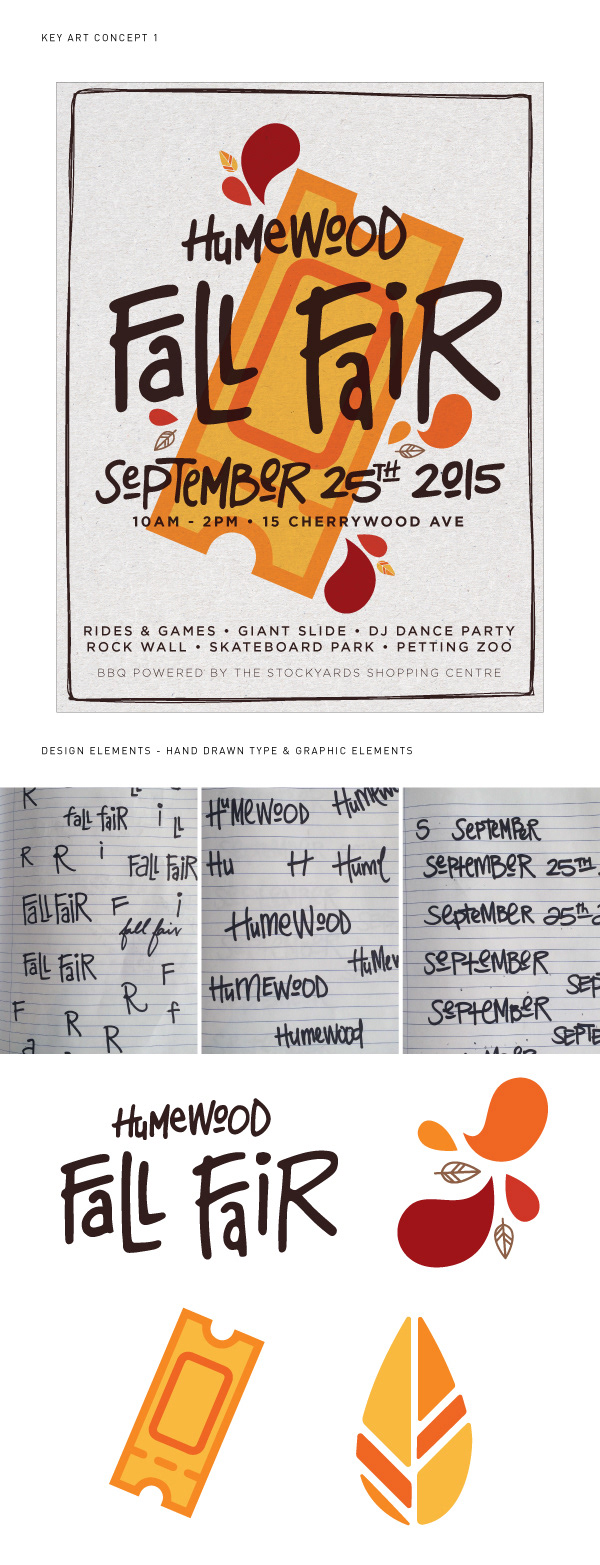 KEY ART CONCEPT 1
HuMeWooD
FaLL FaiR
SePTeMBeR 25TH 2015
10AM - 2PM • 15 CHERRYWOOD AVE
RIDES & GAMES • GIANT SLIDE • DJ DANCE PARTY
ROCK WALL • SKATEBOARD PARK • PETTING ZOO
BBQ POWERED BY THE STOCKYARDS SHOPPING CENTRE
DESIGN ELEMENTS - HAND DRAWN TYPE & GRAPHIC ELEMENTS
R
fall faiR i LL
R R i FaLL FaiR
FaLL FaiR F i
fall fair
FaLL FaiR F
R f
F R R
a
HuMeWooD
Hu H
HumeWooD
HuMEWooD
Humewood
5 SepTeMBeR
SepTeMBeR 25TH
SepteMBeR 25th
SePTeMBeR
SePTeMBeR
HuMeWooD
FaLL FaiR